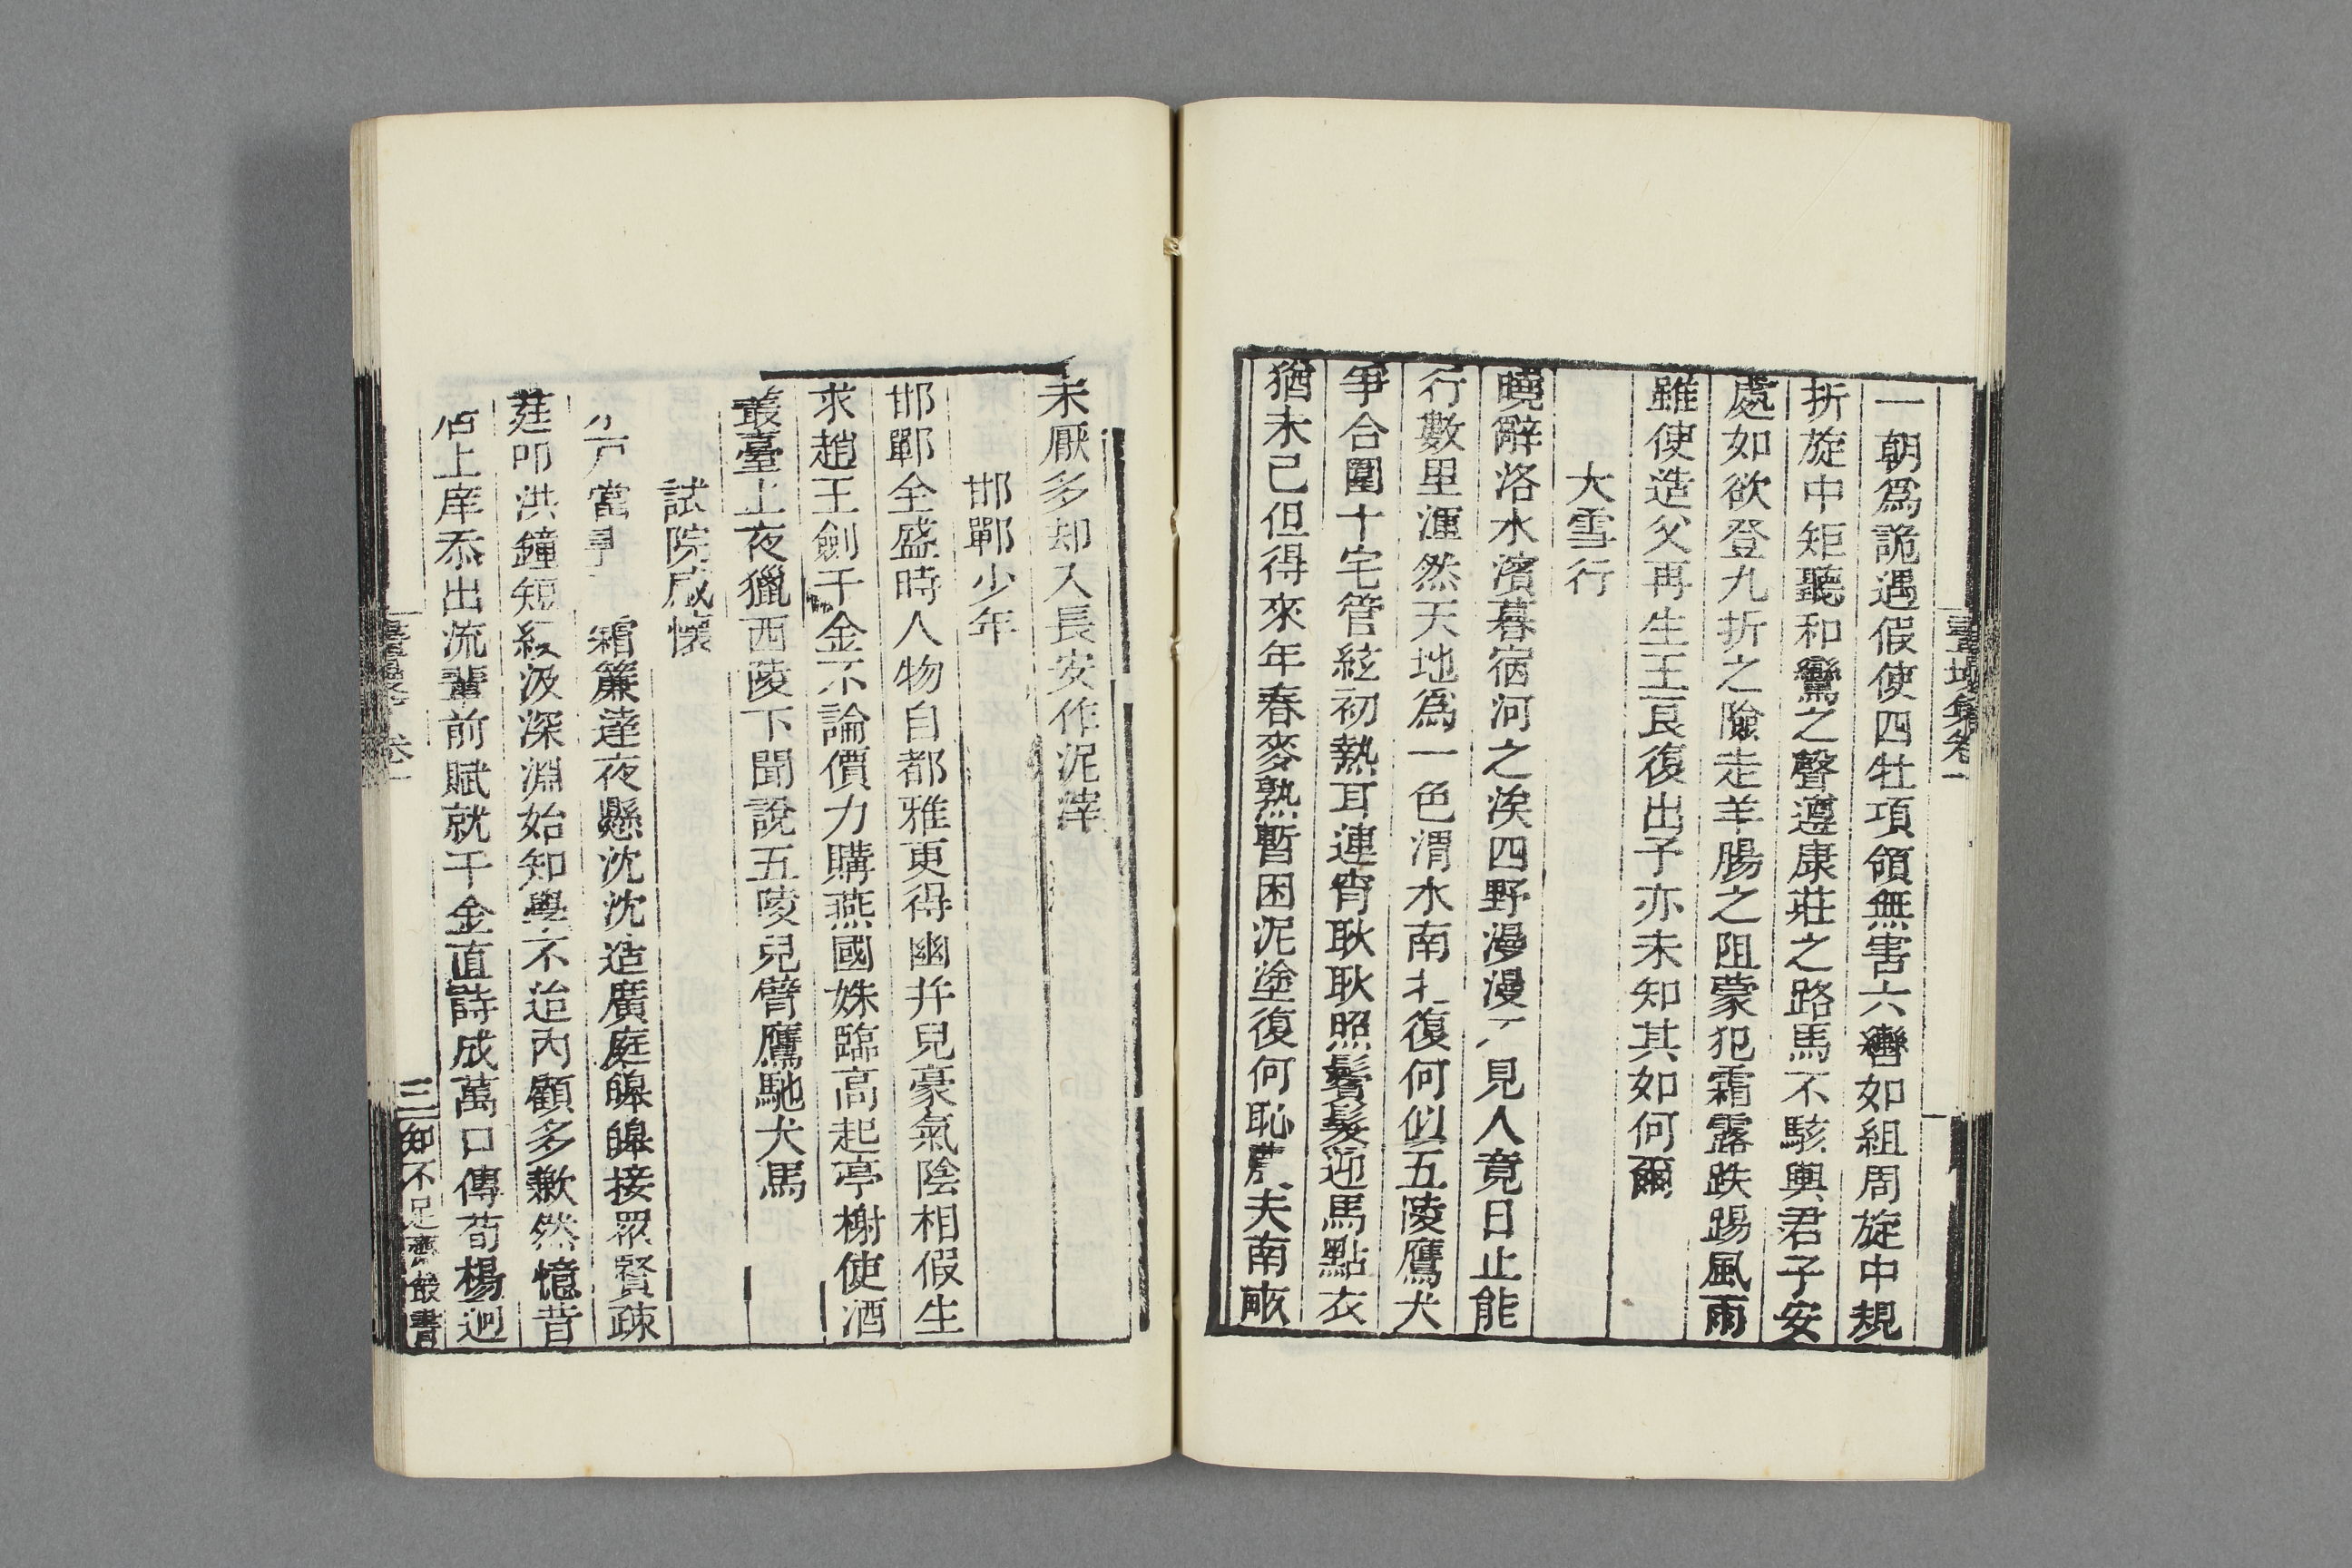 一朝爲詭遇假使四牡項領無害六轡如組周旋中規
折旋中矩聽和鸞之聲遵康莊之路馬不駭輿君子安
處如欲登九折之險走羊腸之阻蒙犯霜露跌踢風雨
雖使造父再生王良復出予亦未知其如何爾
大雪行
曉辭洛水濱暮宿河之涘四野漫漫不見人竟日止能
行數里渾然天地爲一色渭水南北復何似五陵鷹犬
爭合圍十宅管絃初熱耳連宵耿耿照鬢髮迎馬點衣
猶未已但得來年春麥熟暫困泥塗復何恥農夫南畝
未厭多却入長安作泥滓
邯鄲少年
邯鄲全盛時人物自都雅更得幽幷兒豪氣陰相假生
求趙王劍千金不論價力購燕國姝臨高起亭榭使酒
叢臺上夜獵西陵下聞說五陵兒臂鷹馳犬馬
試院感懷
當 霜簾達夜懸沈沈造廣庭皞皞接眾賢疎
莛叩洪鐘短綆汲深淵始知學不迨內顧多歉然憶昔
上庠忝出流輩前賦就千金直詩成萬口傳荀楊迥
卷一
三 知不足齋叢書